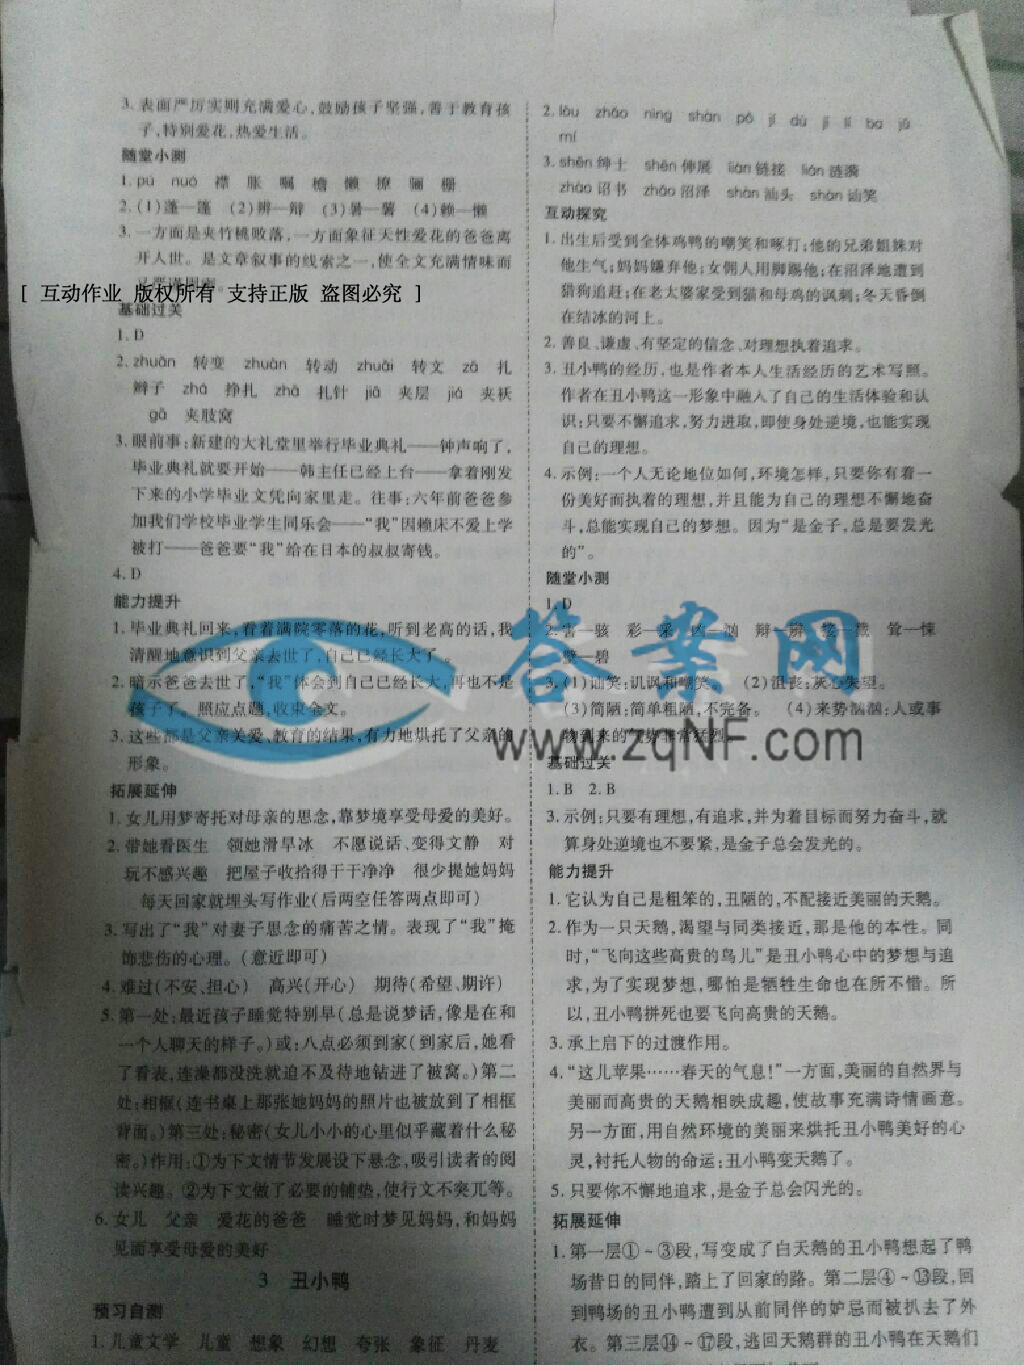 3. 表面严厉实则充满爱心,鼓励孩子坚强,善于教育孩
子,特别爱花,热爱生活。
随堂小测
1. pú nuó 襟 胀 嘱 檐 懒 撩 骊 栅
2. (1)蓬—篷 (2)辨—辩 (3)暑—薯 (4)赖—懒
3. 一方面是夹竹桃败落,一方面象征天性爱花的爸爸离
开人世。是文章叙事的线索之一,使全文充满情味而
[ 互动作业 版权所有 支持正版 盗图必究 ]
基础过关
1. D
2. zhuǎn 转变 zhuàn 转动 zhuǎi 转文 zā 扎
辫子 zhá 挣扎 zhā 扎针 jiā 夹层 jiá 夹袄
gā 夹肢窝
3. 眼前事:新建的大礼堂里举行毕业典礼——钟声响了,
毕业典礼就要开始——韩主任已经上台——拿着刚发
下来的小学毕业文凭向家里走。往事:六年前爸爸参
加我们学校毕业学生同乐会——“我”因赖床不爱上学
被打——爸爸要“我”给在日本的叔叔寄钱。
4. D
能力提升
1. 毕业典礼回来,看着满院零落的花,听到老高的话,我
清醒地意识到父亲去世了,自己已经长大了。
2. 暗示爸爸去世了,“我”体会到自己已经长大,再也不是
孩子了。照应点题,收束全文。
3. 这些都是父亲关爱、教育的结果,有力地烘托了父亲的
形象。
拓展延伸
1. 女儿用梦寄托对母亲的思念,靠梦境享受母爱的美好。
2. 带她看医生 领她滑旱冰 不愿说话、变得文静 对
玩不感兴趣 把屋子收拾得干干净净 很少提她妈妈
每天回家就埋头写作业(后两空任答两点即可)
3. 写出了“我”对妻子思念的痛苦之情。表现了“我”掩
饰悲伤的心理。(意近即可)
4. 难过(不安、担心) 高兴(开心) 期待(希望、期许)
5. 第一处:最近孩子睡觉特别早(总是说梦话,像是在和
一个人聊天的样子。)或:八点必须到家(到家后,她看
了看表,连澡都没洗就迫不及待地钻进了被窝。)第二
处:相框(连书桌上那张她妈妈的照片也被放到了相框
背面。)第三处:秘密(女儿小小的心里似乎藏着什么秘
密。)作用:①为下文情节发展设下悬念,吸引读者的阅
读兴趣。②为下文做了必要的铺垫,使行文不突兀等。
6. 女儿 父亲 爱花的爸爸 睡觉时梦见妈妈,和妈妈
见面享受母爱的美好
3 丑小鸭
预习自测
1. 儿童文学 儿童 想象 幻想 夸张 象征 丹麦
2. lòu zhǎo níng shàn pò jī dù jì lí ba jū
mí
3. shēn 绅士 shēn 伸展 liàn 链接 lián 涟漪
zhào 诏书 zhǎo 沼泽 shàn 汕头 shàn 讪笑
互动探究
1. 出生后受到全体鸡鸭的嘲笑和啄打;他的兄弟姐妹对
他生气;妈妈嫌弃他;女佣人用脚踢他;在沼泽地遭到
猎狗追赶;在老太婆家受到猫和母鸡的讽刺;冬天昏倒
在结冰的河上。
2. 善良、谦虚、有坚定的信念、对理想执着追求。
3. 丑小鸭的经历,也是作者本人生活经历的艺术写照。
作者在丑小鸭这一形象中融入了自己的生活体验和认
识:只要不懈追求,努力进取,即使身处逆境,也能实现
自己的理想。
4. 示例:一个人无论地位如何,环境怎样,只要你有着一
份美好而执着的理想,并且能为自己的理想不懈地奋
斗,总能实现自己的梦想。因为“是金子,总是要发光
的”。
随堂小测
1. D
2. 害—骇 彩—采 凶—汹 辩—辨 耸—悚
壁—碧
3. (1)讪笑:讥讽和嘲笑。 (2)沮丧:灰心失望。
(3)简陋:简单粗陋,不完备。 (4)来势汹汹:人或事
物到来的气势非常猛烈
答案网
www.zqNF.com
基础过关
1. B 2. B
3. 示例:只要有理想,有追求,并为着目标而努力奋斗,就
算身处逆境也不要紧,是金子总会发光的。
能力提升
1. 它认为自己是粗笨的,丑陋的,不配接近美丽的天鹅。
2. 作为一只天鹅,渴望与同类接近,那是他的本性。同
时,“飞向这些高贵的鸟儿”是丑小鸭心中的梦想与追
求,为了实现梦想,哪怕是牺牲生命也在所不惜。所
以,丑小鸭拼死也要飞向高贵的天鹅。
3. 承上启下的过渡作用。
4. “这儿苹果……春天的气息!”一方面,美丽的自然界与
美丽而高贵的天鹅相映成趣,使故事充满诗情画意。
另一方面,用自然环境的美丽来烘托丑小鸭美好的心
灵,衬托人物的命运:丑小鸭变天鹅了。
5. 只要你不懈地追求,是金子总会闪光的。
拓展延伸
1. 第一层①~③段,写变成了白天鹅的丑小鸭想起了鸭
场昔日的同伴,踏上了回家的路。第二层④~⑬段,回
到鸭场的丑小鸭遭到从前同伴的妒忌而被扒去了外
衣。第三层⑭~⑰段,逃回天鹅群的丑小鸭在天鹅们